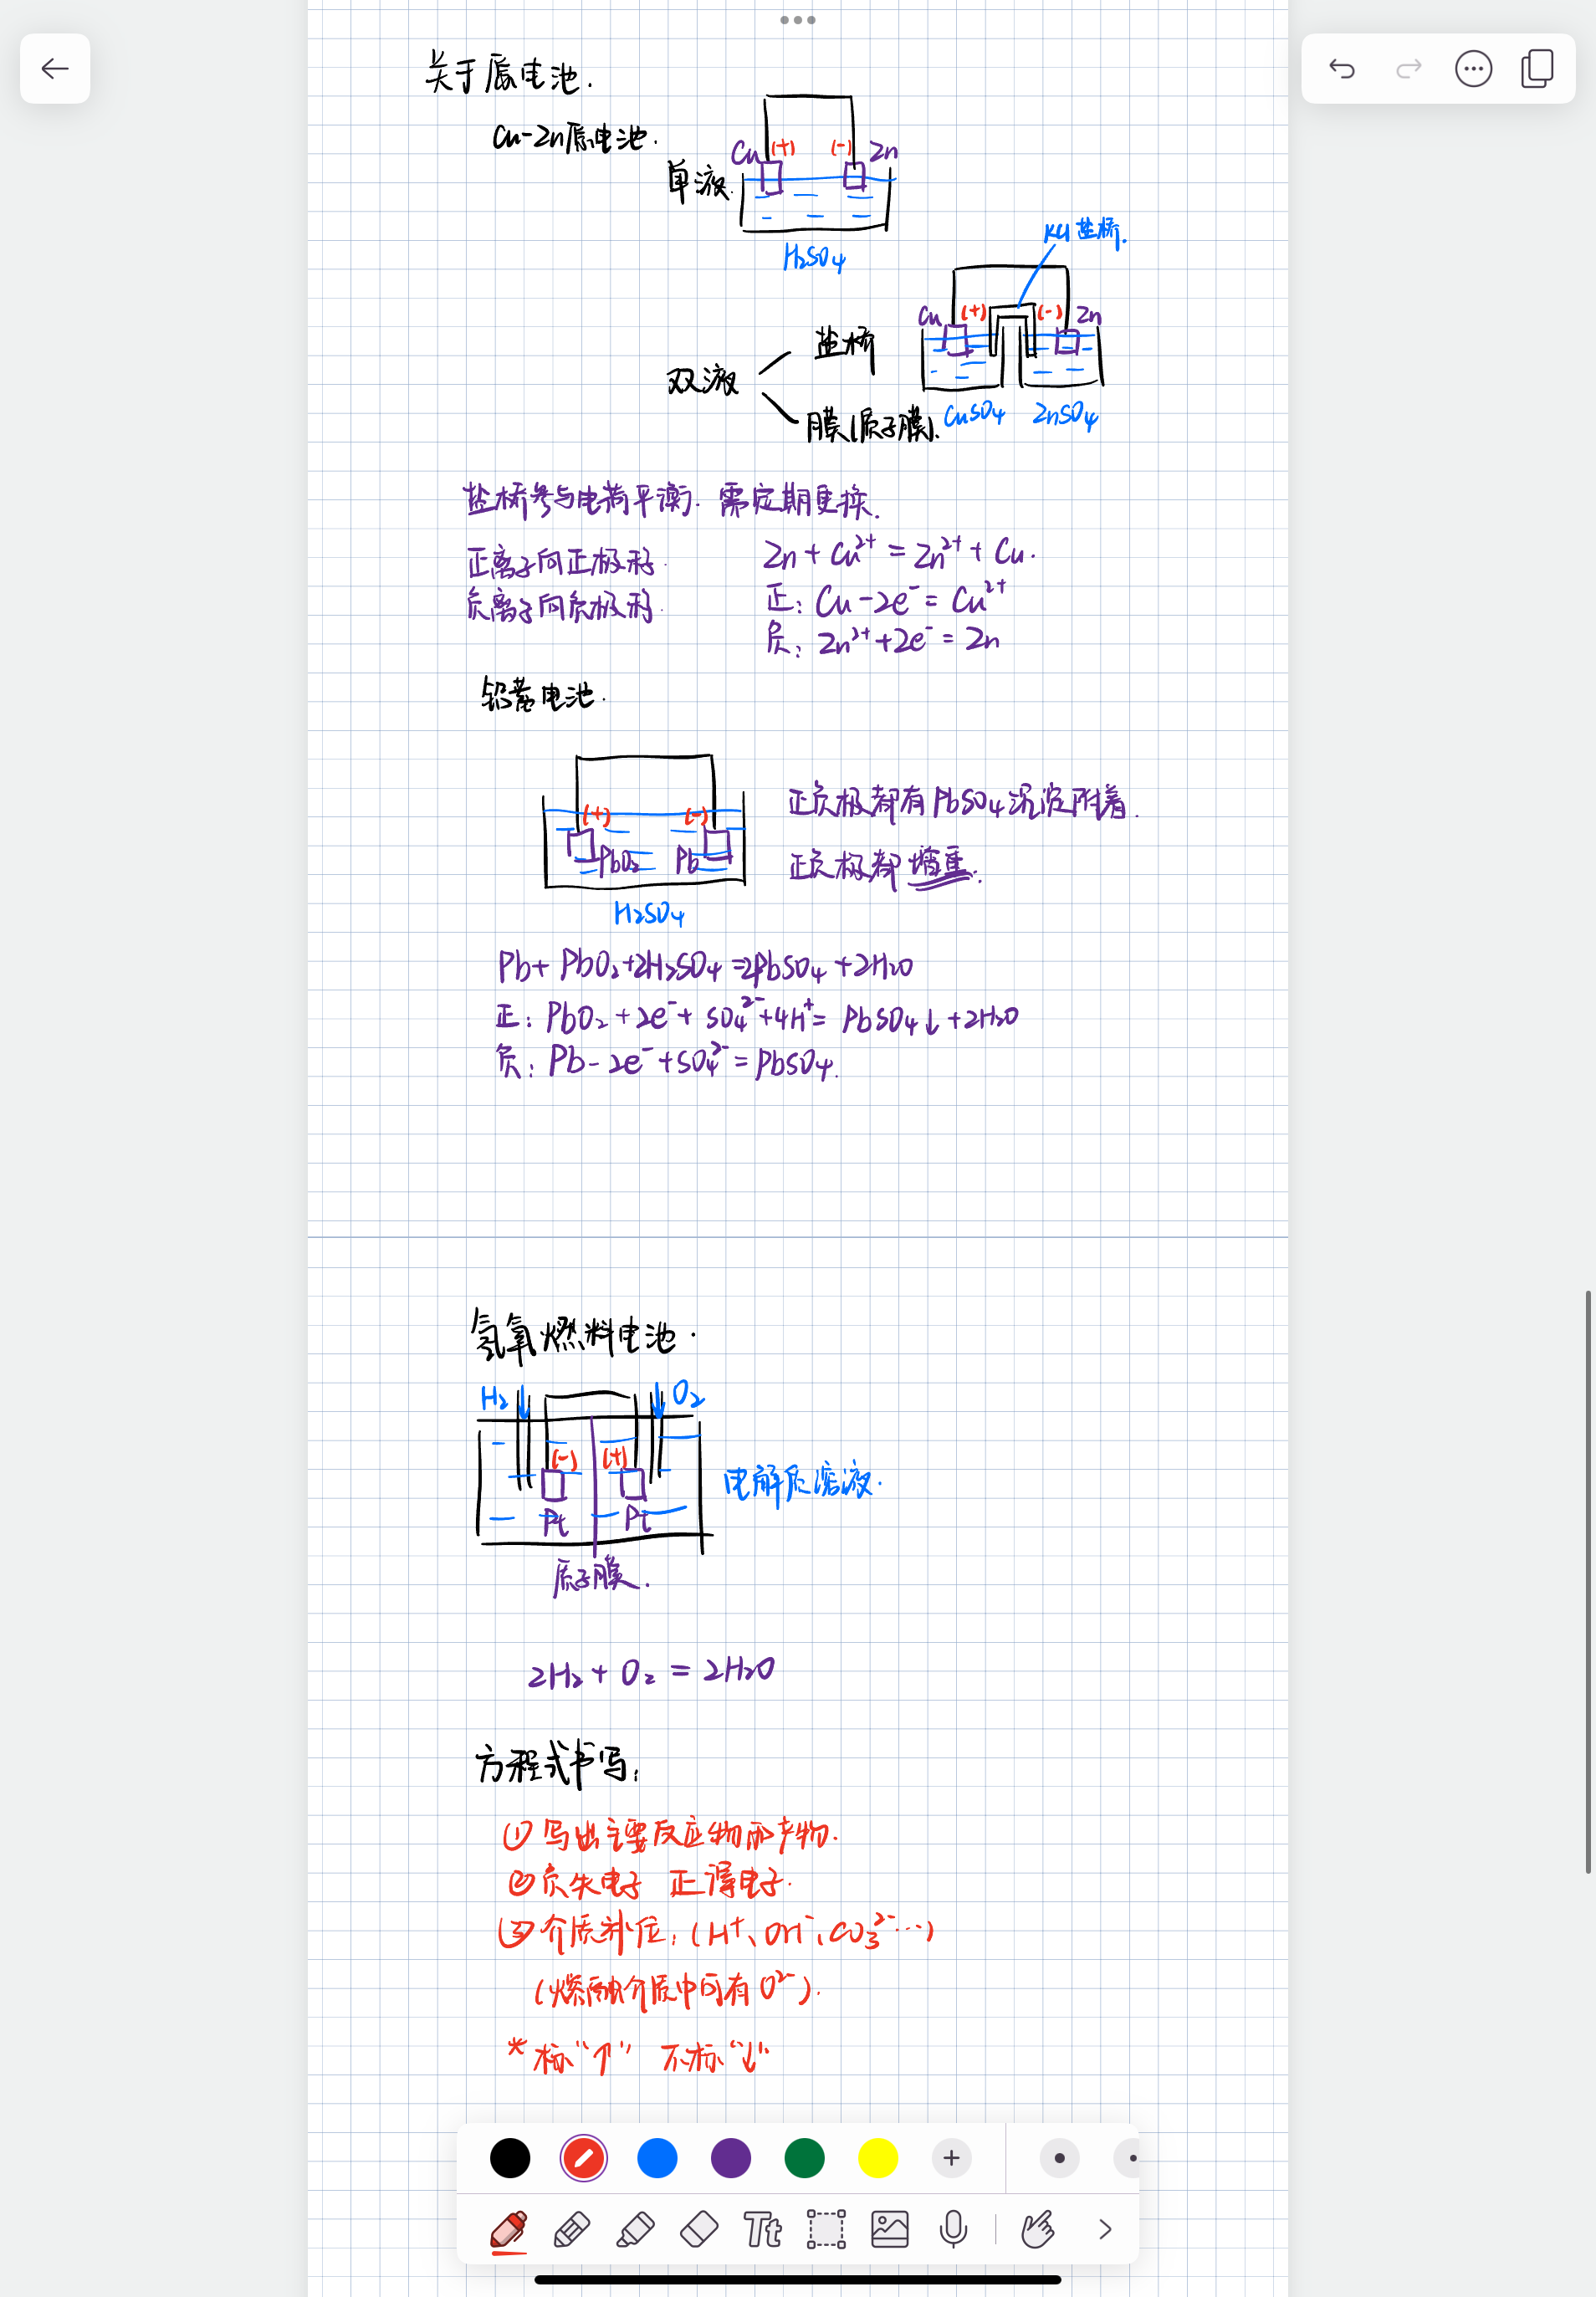 关于原电池.
Cu-Zn原电池.
单液.
Cu (+) (-) Zn
H₂SO₄
KCl 盐桥.
Cu (+) (-) Zn
双液
盐桥
膜(质子膜).
CuSO₄ ZnSO₄
盐桥参与电荷平衡. 需定期更换.
正离子向正极移.
负离子向负极移.
Zn + Cu²⁺ = Zn²⁺ + Cu.
正: Cu - 2e⁻ = Cu²⁺
负: Zn²⁺ + 2e⁻ = Zn
铅蓄电池.
(+) (-)
PbO₂ Pb
H₂SO₄
正负极都有PbSO₄沉淀附着.
正负极都增重.
Pb + PbO₂ + 2H₂SO₄ = 2PbSO₄ + 2H₂O
正: PbO₂ + 2e⁻ + SO₄²⁻ + 4H⁺ = PbSO₄↓ + 2H₂O
负: Pb - 2e⁻ + SO₄²⁻ = PbSO₄.
氢氧燃料电池.
H₂ O₂
(-) (+)
Pt Pt
电解质溶液.
质子膜.
2H₂ + O₂ = 2H₂O
方程式书写:
① 写出主要反应物和产物.
② 负失电子 正得电子.
③ 介质补位: (H⁺、OH⁻、CO₃²⁻…)
(熔融介质中可有O²⁻).
* 标“↑” 不标“↓”
Tt